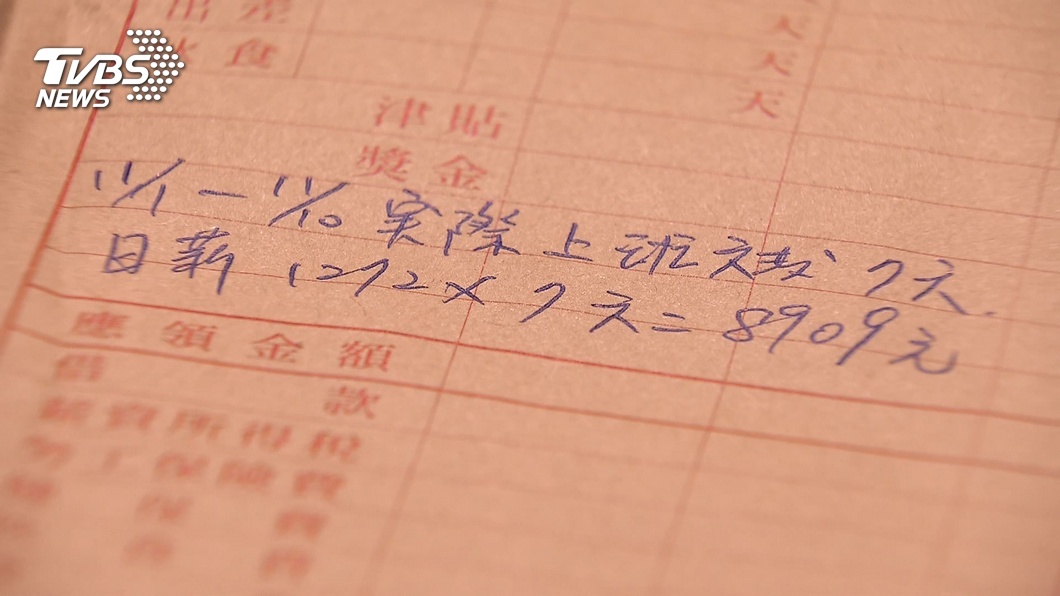 TVBS
NEWS
出差
食
天
天
天
津貼
獎金
11/1 — 11/10 实際上班天数 7天
日薪 1272 × 7天 = 8909元
應領金額
借款
薪資所得稅
勞工保險費
保費